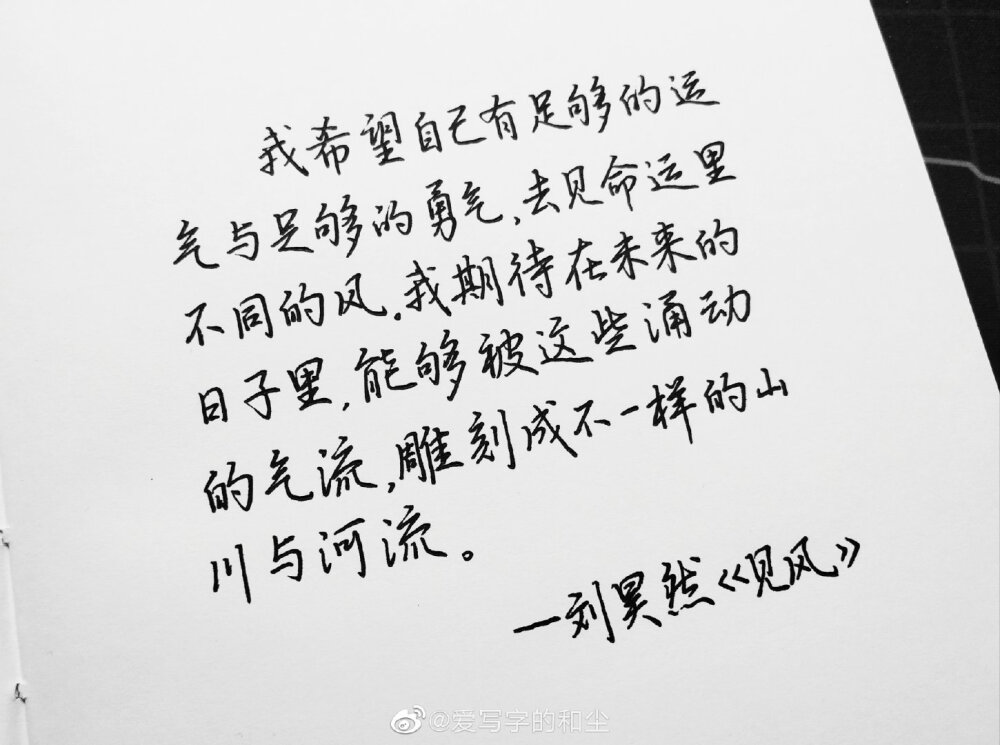 我希望自己有足够的运
气与足够的勇气,去见命运里
不同的风。我期待在未来的
日子里,能够被这些涌动
的气流,雕刻成不一样的山
川与河流。
—刘昊然《见风》
@爱写字的和尘